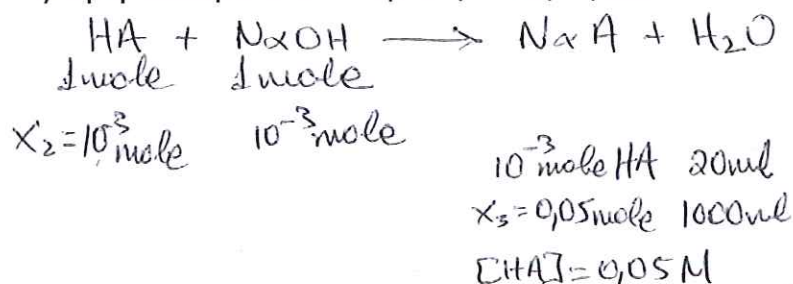 HA + NaOH ⟶ NaA + H₂O
1mole 1mole
X₂=10³mole 10⁻³mole
10⁻³mole HA 20ml
X₃=0,05mole 1000ml
[HA]=0,05M